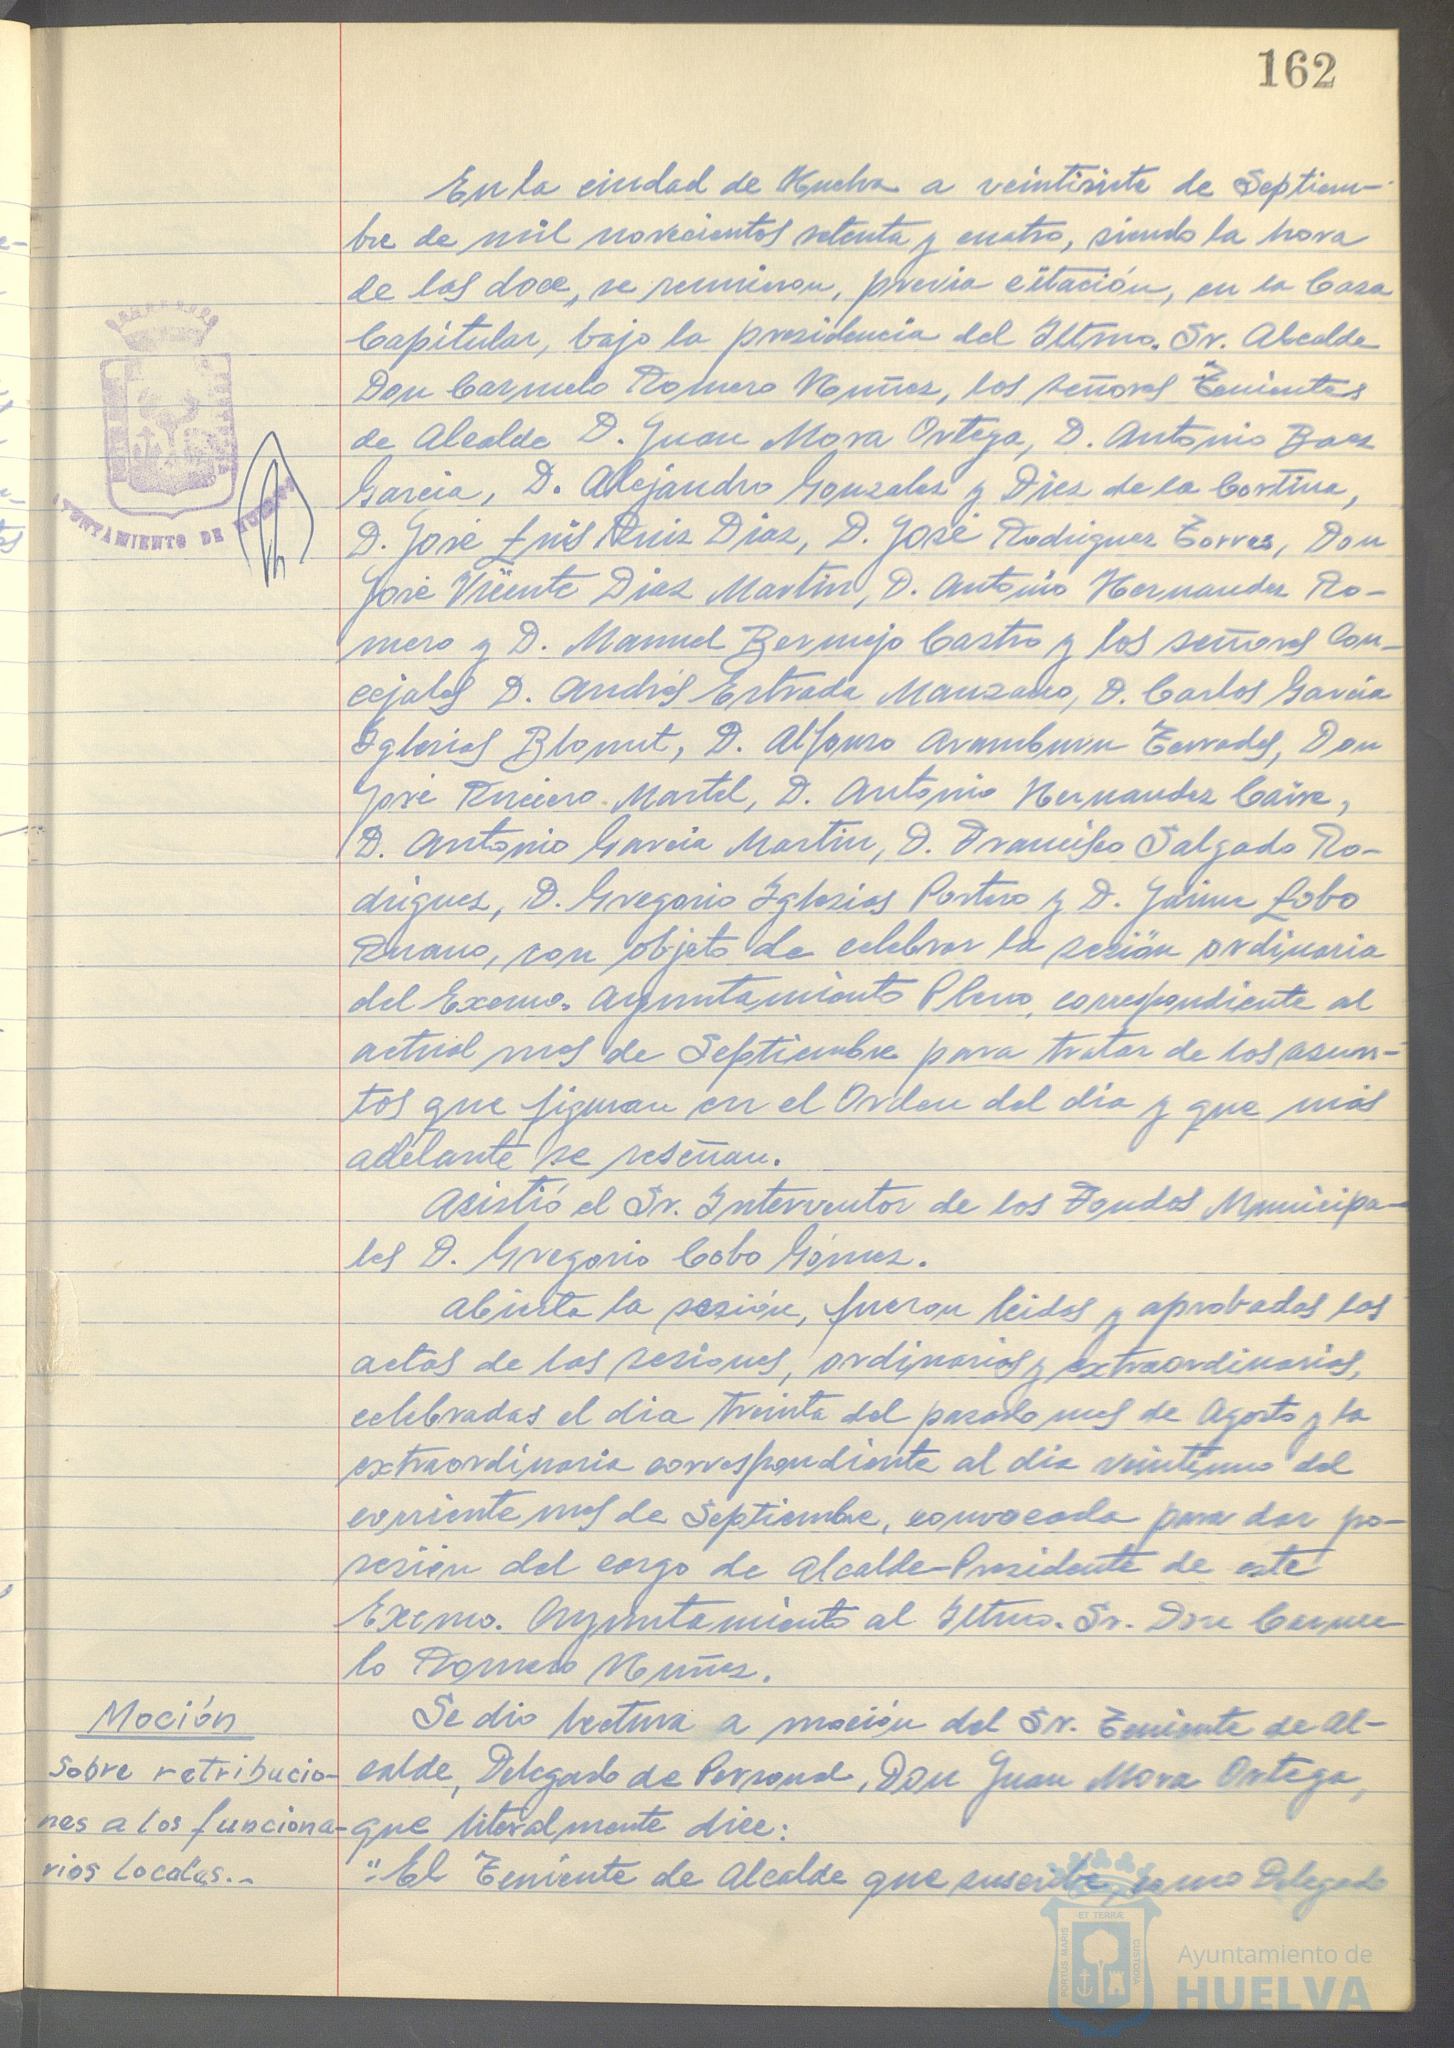 162
En la ciudad de Huelva a veintisiete de Septiem-
bre de mil novecientos setenta y cuatro, siendo la hora
de las doce, se reunieron, previa citación, en la Casa
Capitular, bajo la presidencia del Iltmo. Sr. Alcalde
Don Carmelo Romero Nuñez, los señores Tenientes
de Alcalde D. Juan Mora Ortega, D. Antonio Baez
Garcia, D. Alejandro Gonzalez y Diez de la Cortina,
D. José Luis Ruiz Diaz, D. José Rodriguez Torres, Don
José Vicente Diaz Martin, D. Antonio Hernandez Ro-
mero y D. Manuel Bermejo Castro y los señores Con-
cejales D. Andrés Estrada Manzano, D. Carlos Garcia
Iglesias Blomut, D. Alfonso Aramburu Terrades, Don
José Ruciero Martel, D. Antonio Hernandez Caire,
D. Antonio Garcia Martin, D. Francisco Salgado Ro-
driguez, D. Gregorio Iglesias Portero y D. Jaime Lobo
Ruano, con objeto de celebrar la sesión ordinaria
del Excmo. Ayuntamiento Pleno, correspondiente al
actual mes de Septiembre para tratar de los asun-
tos que figuran en el Orden del dia y que más
adelante se reseñan.
Asistió el Sr. Interventor de los Fondos Municipa-
les D. Gregorio Cobo Gómez.
Abierta la sesión, fueron leidas y aprobadas las
actas de las sesiones, ordinarias y extraordinarias,
celebradas el dia treinta del pasado mes de Agosto y la
extraordinaria correspondiente al dia veintiuno del
corriente mes de Septiembre, convocada para dar po-
sesión del cargo de Alcalde-Presidente de este
Excmo. Ayuntamiento al Iltmo. Sr. Don Carme-
lo Romero Nuñez.
Moción
sobre retribucio-
nes a los funciona-
rios locales.-
Se dio lectura a moción del Sr. Teniente de Al-
calde, Delegado de Personal, Don Juan Mora Ortega,
que literalmente dice:
"El Teniente de Alcalde que suscribe, como Delegado
AYUNTAMIENTO DE HUELVA
PORTUS MARIS ET TERRÆ CUSTODIA
Ayuntamiento de
HUELVA